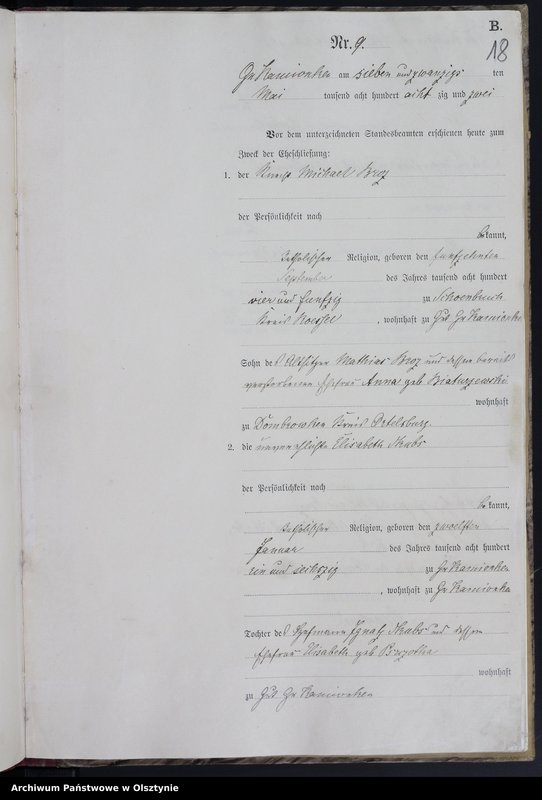 B.
18
Nr. 9.
Gr Kamionken am sieben und zwanzigs ten
Mai tausend acht hundert acht zig und zwei
Vor dem unterzeichneten Standesbeamten erschienen heute zum
Zweck der Eheschließung:
1. der Knecht Michael Broz
der Persönlichkeit nach
be kannt,
katholischer Religion, geboren den fünfzehnten
September des Jahres tausend acht hundert
vier und funfzig zu Schoenbruch
Kreis Roessel, wohnhaft zu Gut Gr Kamionken
Sohn des Altsitzer Mathias Broz und dessen bereits
verstorbenen Ehefrau Anna geb
wohnhaft
zu Dombrowken Kreis Ortelsburg
2. die unverehelichte Elisabeth Skubs
der Persönlichkeit nach
be kannt,
katholischer Religion, geboren den zwoelften
Januar des Jahres tausend acht hundert
ein und sechszig zu Gr Kamionken
, wohnhaft zu Gr Kamionken
Tochter des Ignatz Skubs und dessen
Ehefrau Elisabeth geb
wohnhaft
zu Gut Gr Kamionken
Archiwum Państwowe w Olsztynie